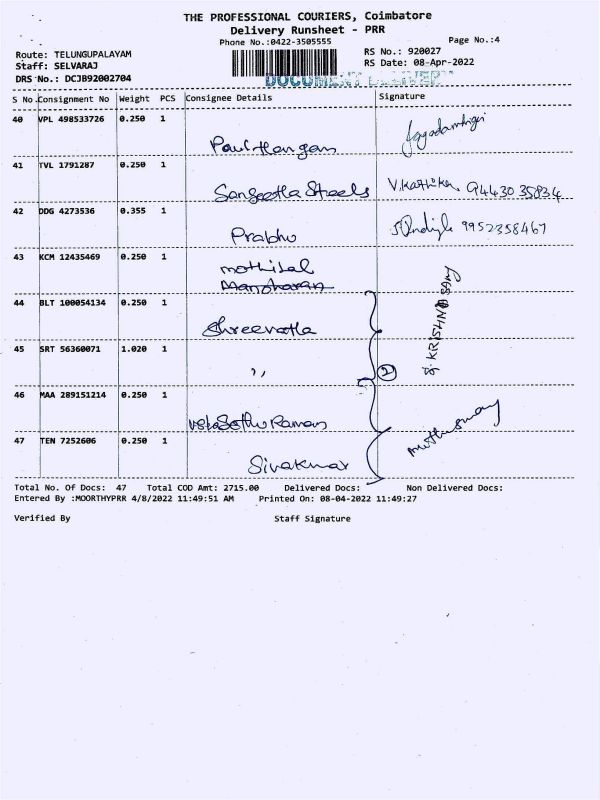 THE PROFESSIONAL COURIERS, Coimbatore
Delivery Runsheet - PRR
Phone No.:0422-3505555
Page No.:4
Route: TELUNGUPALAYAM
RS No.: 920027
Staff: SELVARAJ
RS Date: 08-Apr-2022
DRS No.: DCJB92002704
S No. Consignment No Weight PCS Consignee Details Signature
40 VPL 498533726 0.250 1
41 TVL 1791287 0.250 1
Sangeetha Steels 94430 35834
42 DDG 4273536 0.355 1
Prabhu 9952358467
43 KCM 12435469 0.250 1
mothilal
Manoharan
44 BLT 100054134 0.250 1
Shreevatla
S. KRISHNASAMY
45 SRT 56360071 1.020 1
,, 2
46 MAA 289151214 0.250 1
47 TEN 7252606 0.250 1
Sivakumar
Total No. Of Docs: 47 Total COD Amt: 2715.00 Delivered Docs: Non Delivered Docs:
Entered By :MOORTHYPRR 4/8/2022 11:49:51 AM Printed On: 08-04-2022 11:49:27
Verified By Staff Signature